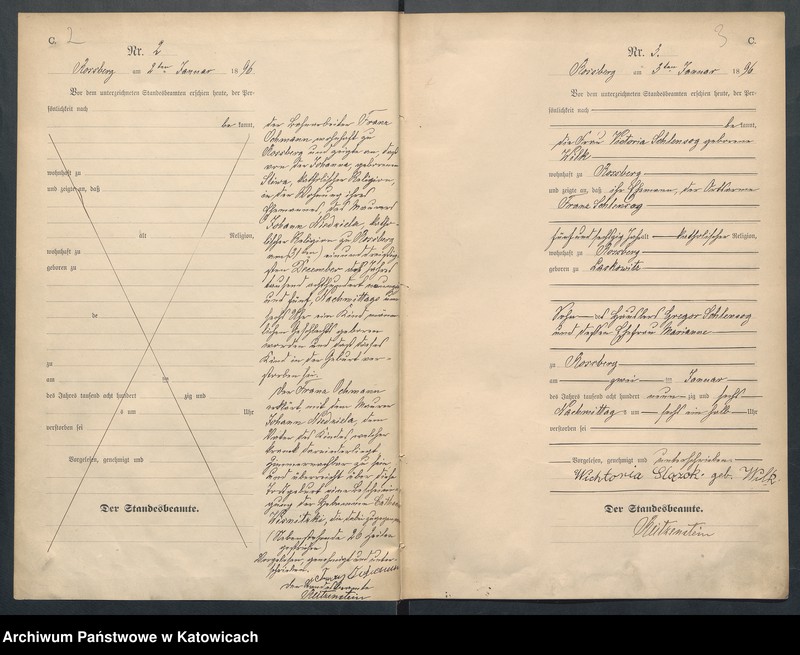 C. 2
Nr. 2
Rossberg am 2ten Januar 1896
Vor dem unterzeichneten Standesbeamten erschien heute, der Per-
sönlichkeit nach
be kannt,
wohnhaft zu
und zeigte an, daß
alt Religion,
wohnhaft zu
geboren zu
de
zu
am ten
des Jahres tausend acht hundert zig und
um Uhr
verstorben sei
Vorgelesen, genehmigt und
Der Standesbeamte.
der Franz
Ochmann, wohnhaft zu
Rossberg und zeigte an, daß
von der Johanna, geborene
katholischer Religion,
in der Wohnung ihres
Ehemannes, des Maurers
Johann Niedziela, katho-
lischer Religion zu Rossberg
am 31ten, einunddreißig-
sten December des Jahres
tausend achthundert neunzig
und fünf, Nachmittags um
sechs Uhr ein Kind männ-
lichen Geschlechts geboren
worden und daß dieses
Kind in der Geburt ver-
storben sei.
Der Franz Ochmann
erklärt, mit dem Maurer
Johann Niedziela, dem
Vater des Kindes, welcher
krank darniederliegt
zu sein
und überreicht über diese
Todtgeburt eine Bescheini-
gung der Hebamme
die dabei zugegen
(Nebenstehende 26 Zeilen
gestrichen)
Vorgelesen, genehmigt und unter-
schrieben.
Der Standesbeamte
Reitzenstein
3 C.
Nr. 3.
Rossberg am 3ten Januar 1896
Vor dem unterzeichneten Standesbeamten erschien heute, der Per-
sönlichkeit nach
be kannt,
die Frau Victoria Schlensog geborene
Wilk
wohnhaft zu Rossberg
und zeigte an, daß ihr Ehemann, der Ortsarme
Franz Schlensog
fünfundsechzig Jahr alt katholischer Religion,
wohnhaft zu Rossberg
geboren zu Laskowitz
Sohn des Häuslers Gregor Schlensog
und dessen Ehefrau Marianne
zu Rossberg
am zwei ten Januar
des Jahres tausend acht hundert neun zig und sechs
Nachmittags um sechs ein halb Uhr
verstorben sei
Vorgelesen, genehmigt und unterschrieben
Wichtoria geb. Wilk
Der Standesbeamte.
Reitzenstein
Archiwum Państwowe w Katowicach